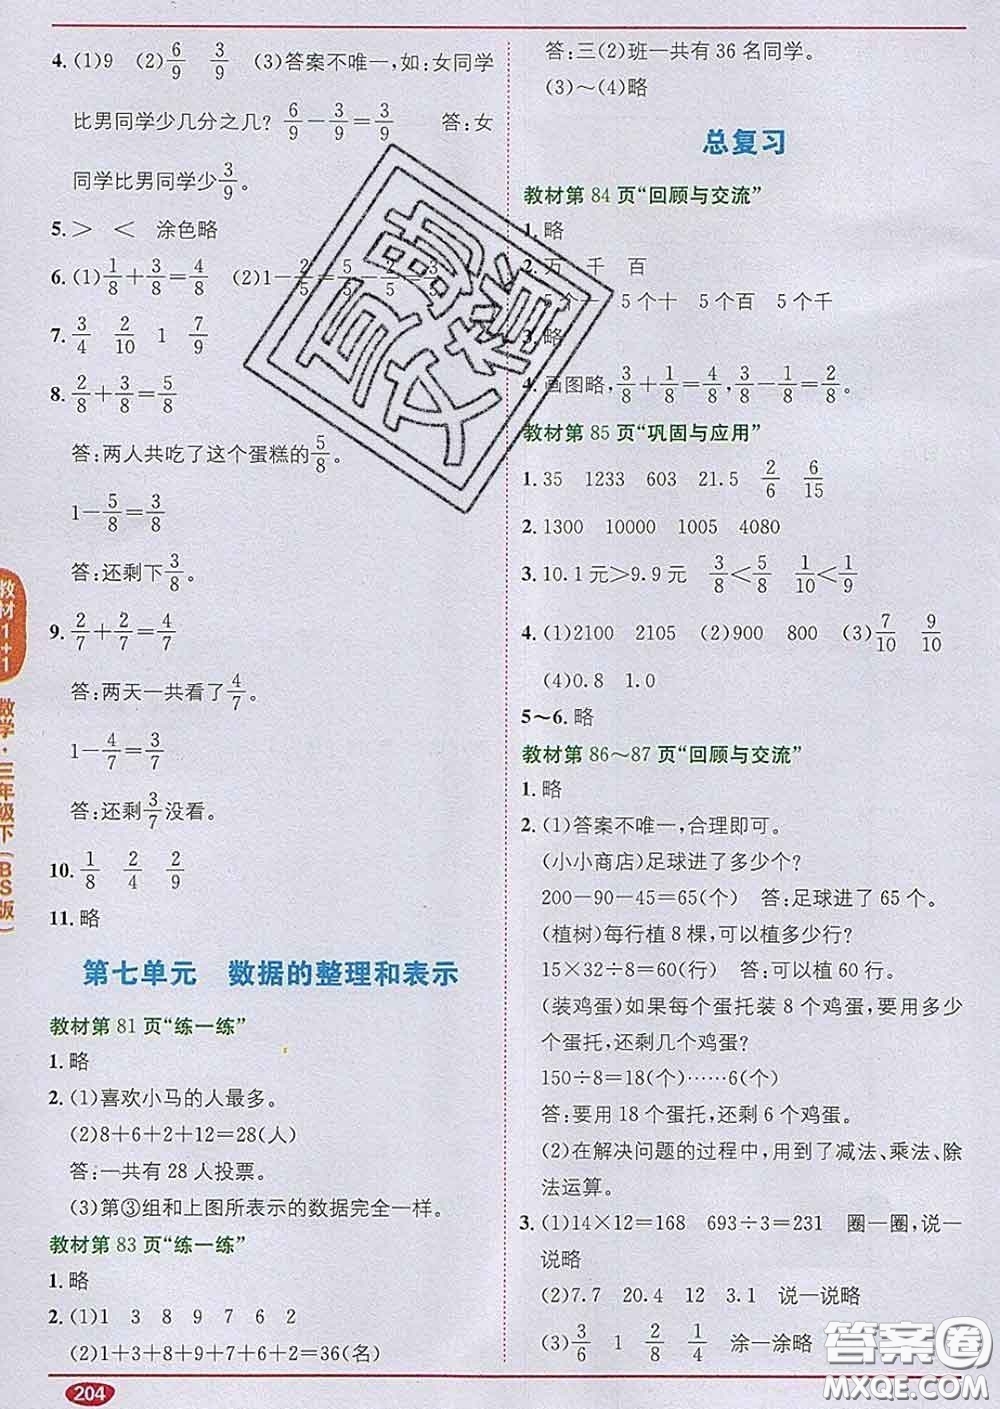 4. (1)9 (2)6/9 3/9 (3)答案不唯一,如:女同学
比男同学少几分之几? 6/9－3/9＝3/9 答:女
同学比男同学少3/9。
5. ＞ ＜ 涂色略
6. (1)1/8＋3/8＝4/8 (2)1－2/5＝5/5－2/5＝3/5
7. 3/4 2/10 1 7/9
8. 2/8＋3/8＝5/8
答:两人共吃了这个蛋糕的5/8。
1－5/8＝3/8
答:还剩下3/8。
9. 2/7＋2/7＝4/7
答:两天一共看了4/7。
1－4/7＝3/7
答:还剩3/7没看。
10. 1/8 2/4 2/9
11. 略
第七单元 数据的整理和表示
教材第 81 页“练一练”
1. 略
2. (1)喜欢小马的人最多。
(2)8＋6＋2＋12＝28(人)
答:一共有 28 人投票。
(3)第③组和上图所表示的数据完全一样。
教材第 83 页“练一练”
1. 略
2. (1)1 3 8 9 7 6 2
(2)1＋3＋8＋9＋7＋6＋2＝36(名)
答:三(2)班一共有 36 名同学。
(3)～(4)略
总复习
教材第 84 页“回顾与交流”
1. 略
2. 万 千 百
5个一 5个十 5个百 5个千
3. 略
4. 画图略,3/8＋1/8＝4/8,3/8－1/8＝2/8。
教材第 85 页“巩固与应用”
1. 35 1233 603 21.5 2/6 6/15
2. 1300 10000 1005 4080
3. 10.1元＞9.9元 3/8＜5/8 1/10＜1/9
4. (1)2100 2105 (2)900 800 (3)7/10 9/10
(4)0.8 1.0
5～6. 略
教材第 86～87 页“回顾与交流”
1. 略
2. (1)答案不唯一,合理即可。
(小小商店)足球进了多少个?
200－90－45＝65(个) 答:足球进了 65 个。
(植树)每行植 8 棵,可以植多少行?
15×32÷8＝60(行) 答:可以植 60 行。
(装鸡蛋)如果每个蛋托装 8 个鸡蛋,要用多少
个蛋托,还剩几个鸡蛋?
150÷8＝18(个)……6(个)
答:要用 18 个蛋托,还剩 6 个鸡蛋。
(2)在解决问题的过程中,用到了减法、乘法、除
法运算。
3. (1)14×12＝168 693÷3＝231 圈一圈,说一
说略
(2)7.7 20.4 12 3.1 说一说略
(3)3/6 1 2/8 1/4 涂一涂略
教材1+1
数学·三年级下(BS版)
204
答案圈
MXQE.COM